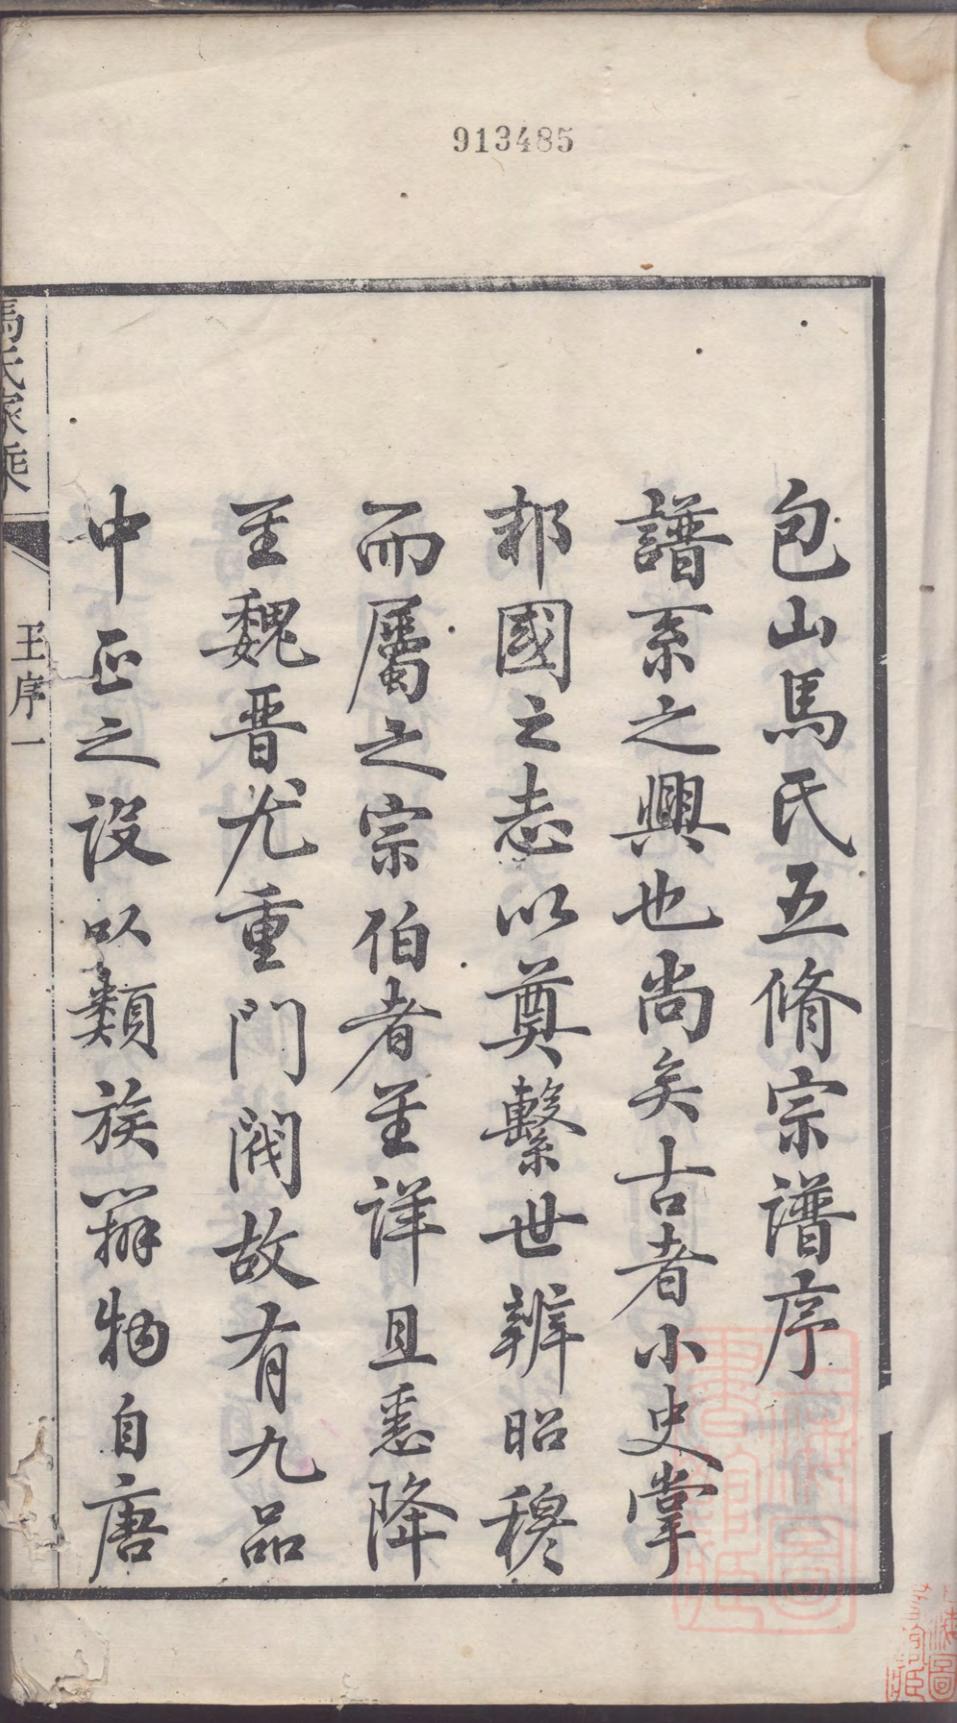 913485
包山馬氏五脩宗譜序
譜系之興也尚矣古者小史掌
邦國之志以奠繫世辨昭穆
而屬之宗伯者至詳且悉降
至魏晋尤重門閥故有九品
中正之設以類族辨物自唐
馬氏家乘
王序一